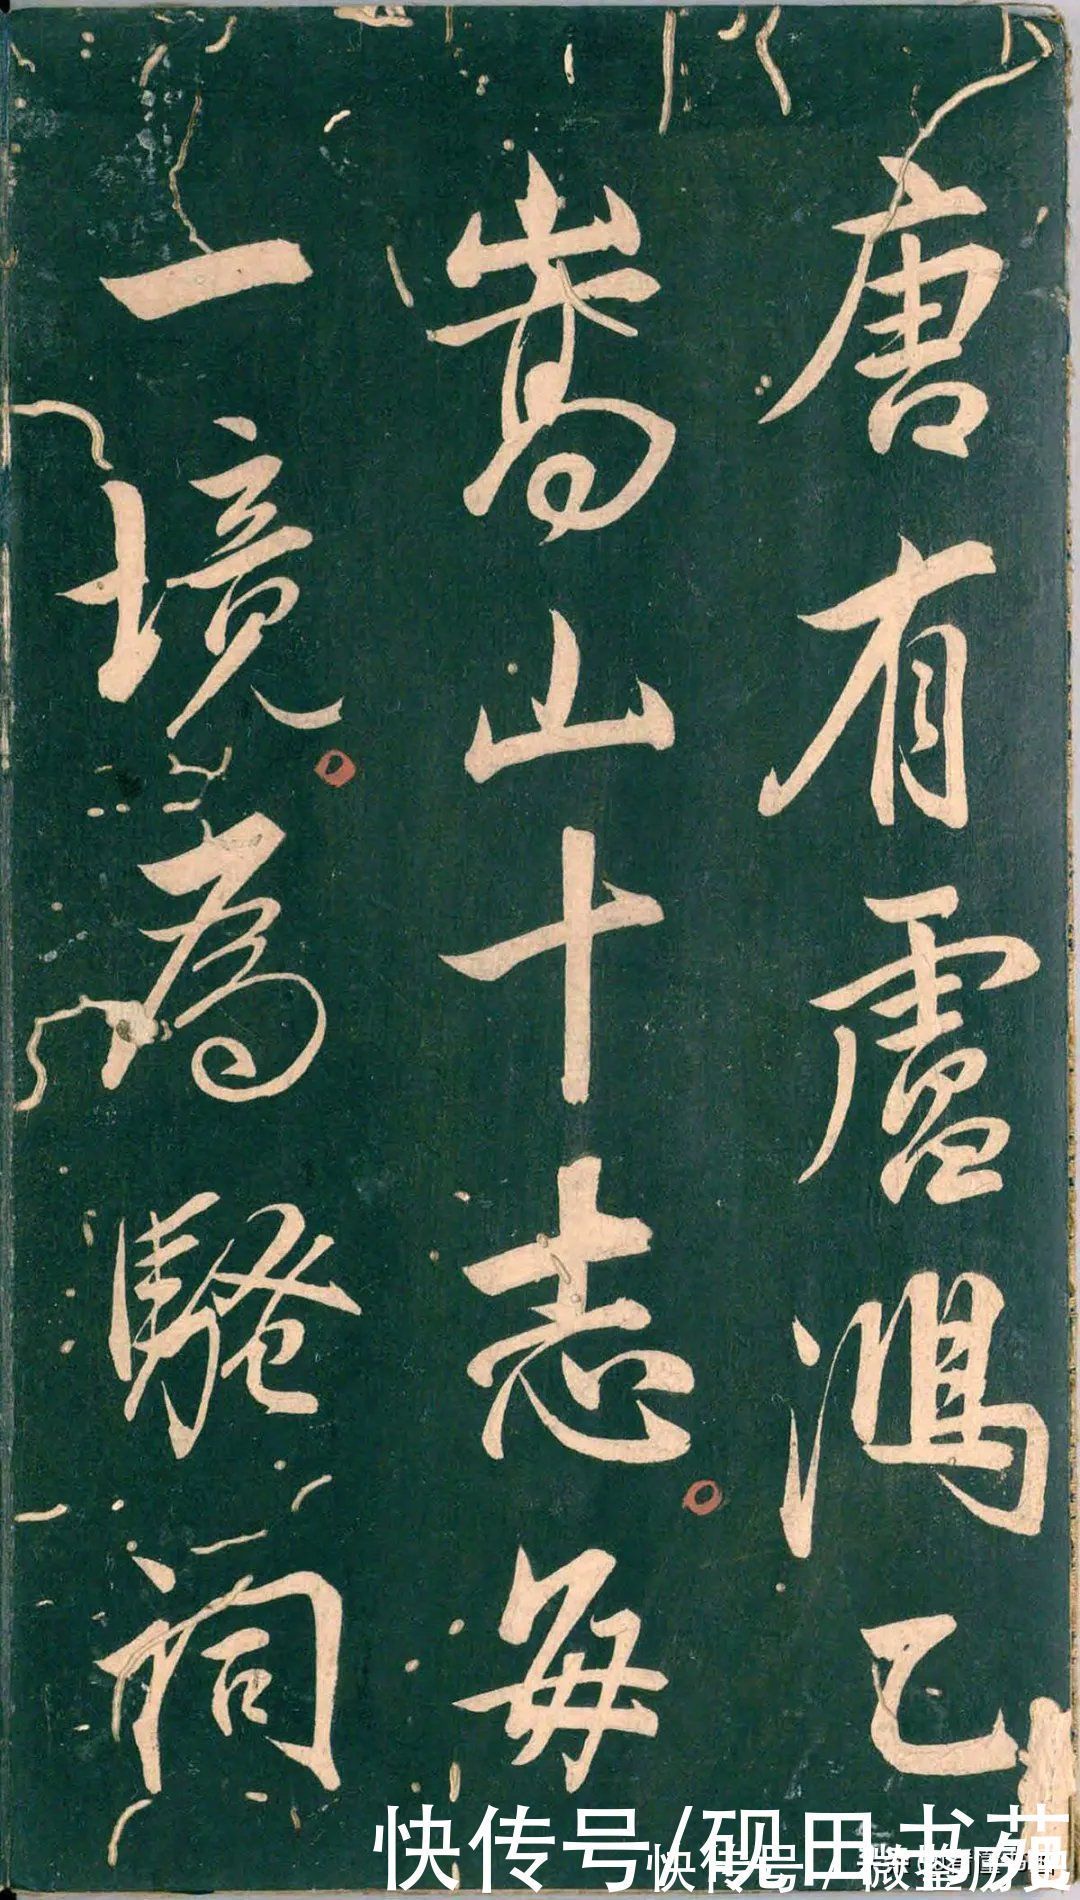 唐有盧鴻乙
嵩山十志每
一境為騷詞
快传号/砚田书苑
快传号/微